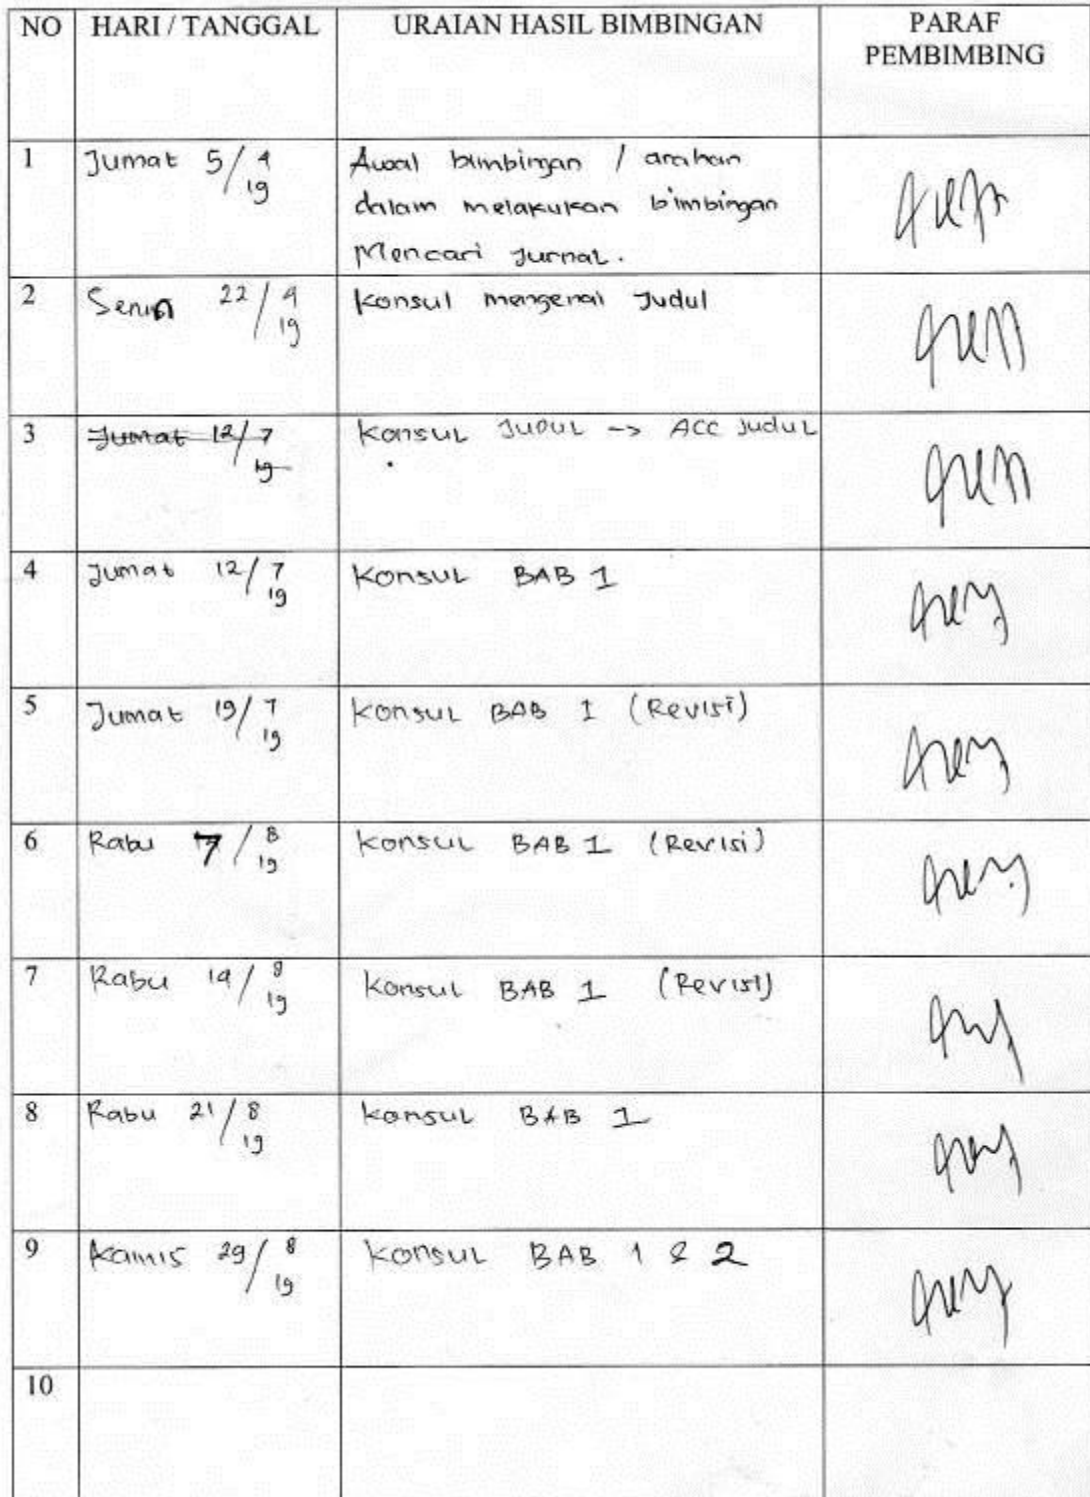 NO HARI / TANGGAL URAIAN HASIL BIMBINGAN PARAF
PEMBIMBING
1 Jumat 5/4 Awal bimbingan / arahan
19 dalam melakukan bimbingan
Mencari Jurnal.
2 Senin 22/4 Konsul mengenai Judul
19
3 Jumat 12/7 Konsul Judul -> ACC Judul
19
4 Jumat 12/7 Konsul BAB 1
19
5 Jumat 19/7 Konsul BAB I (Revisi)
19
6 Rabu 7/8 Konsul BAB 1 (Revisi)
19
7 Rabu 14/8 Konsul BAB 1 (Revisi)
19
8 Rabu 21/8 Konsul BAB 1
19
9 Kamis 29/8 Konsul BAB 1 & 2
19
10